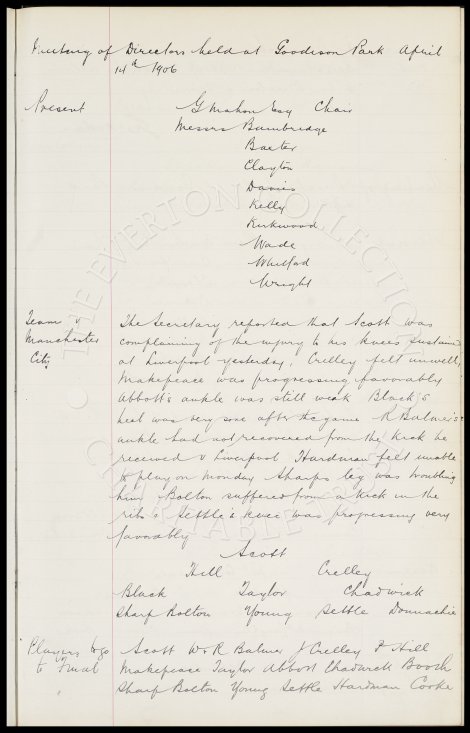 Meeting of Directors held at Goodison Park April
14th 1906
Present
G Mahon Esq Chair
Messrs Bainbridge
Baxter
Clayton
Davies
Kelly
Kirkwood
Wade
Whitford
Wright
Team v
Manchester
City
The Secretary reported that Scott was
complaining of the injury to his knees sustained
at Liverpool yesterday. Crelley felt unwell,
Makepeace was progressing favorably
Abbott's ankle was still weak Black's
heel was very sore after the game R Balmer's
ankle had not recovered from the kick he
received v Liverpool Hardman felt unable
to play on Monday Sharps leg was troubling
him Bolton suffered from a kick in the
ribs & Settle's knee was progressing very
favorably
Scott
Hill Crelley
Black Taylor Chadwick
Sharp Bolton Young Settle Donnachie
Players to go
to Final
Scott W & R Balmer J Crelley P Hill
Makepeace Taylor Abbott Chadwick Booth
Sharp Bolton Young Settle Hardman Cooke
© THE EVERTON COLLECTION
CHARITABLE